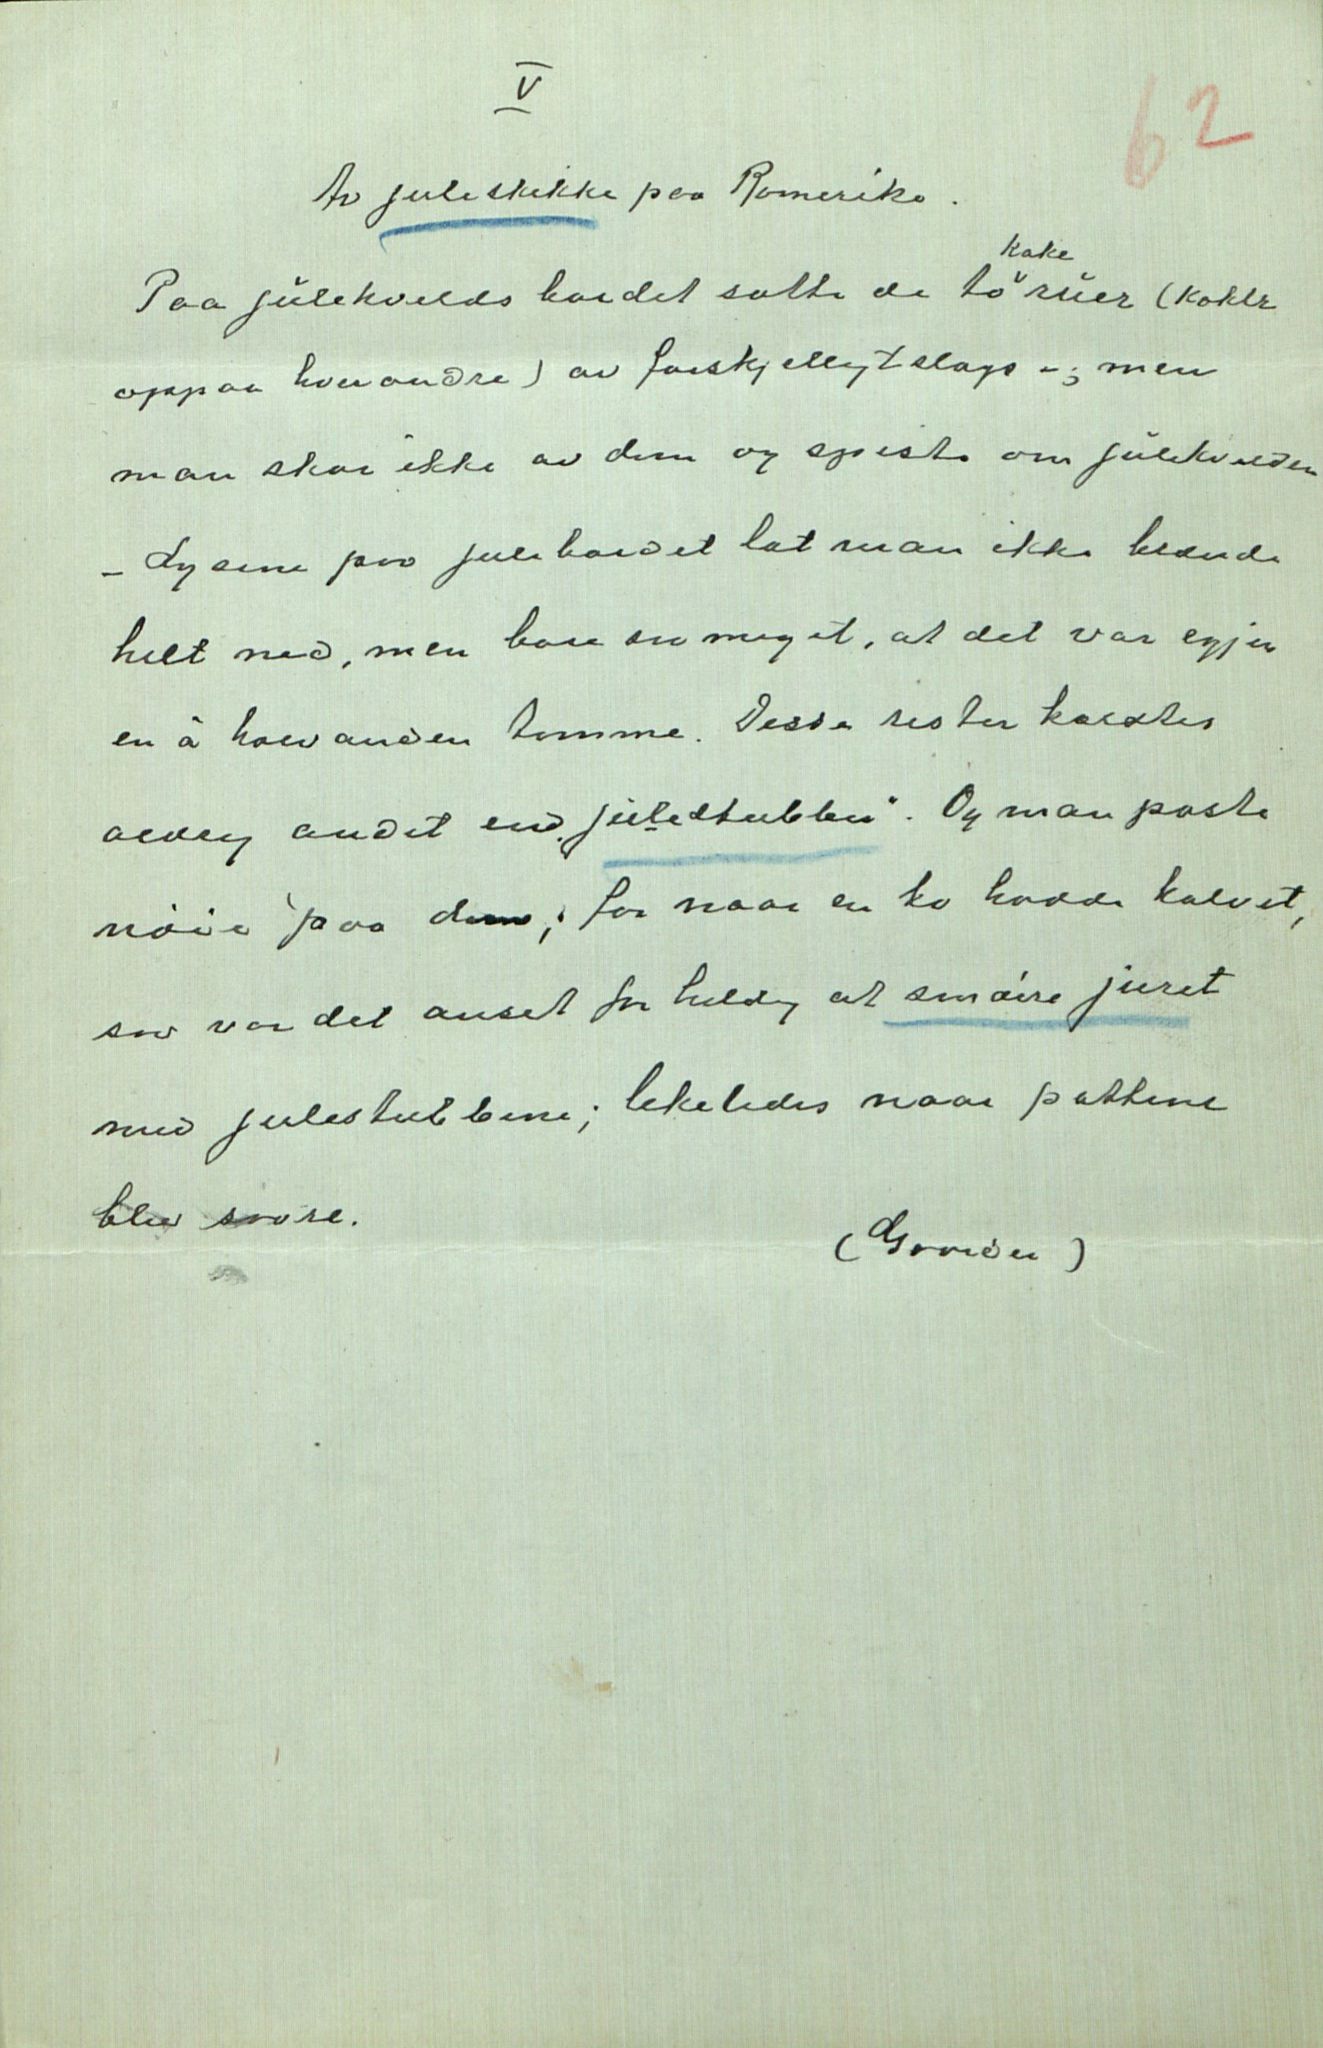 V
62
Av juleskikke paa Romerike.
kake
Paa julekvelds bordet satte de törüer (kaker
oppaa hverandre) av forskjelligt slags -; men
man skar ikke av dem og spiste om julekvelden
- Lysene paa julebordet lot man ikke brænde
helt ned, men bare saa meget, at det var igjen
en à halvanden tomme. Disse rester kaldtes
aldrig andet end "julestubber". Og man paste
nöie paa dem; for naar en ko hadde kalvet,
saa var det anset for heldig at smöire juret
med julestubbene; likeledes naar pattene
blev saare.